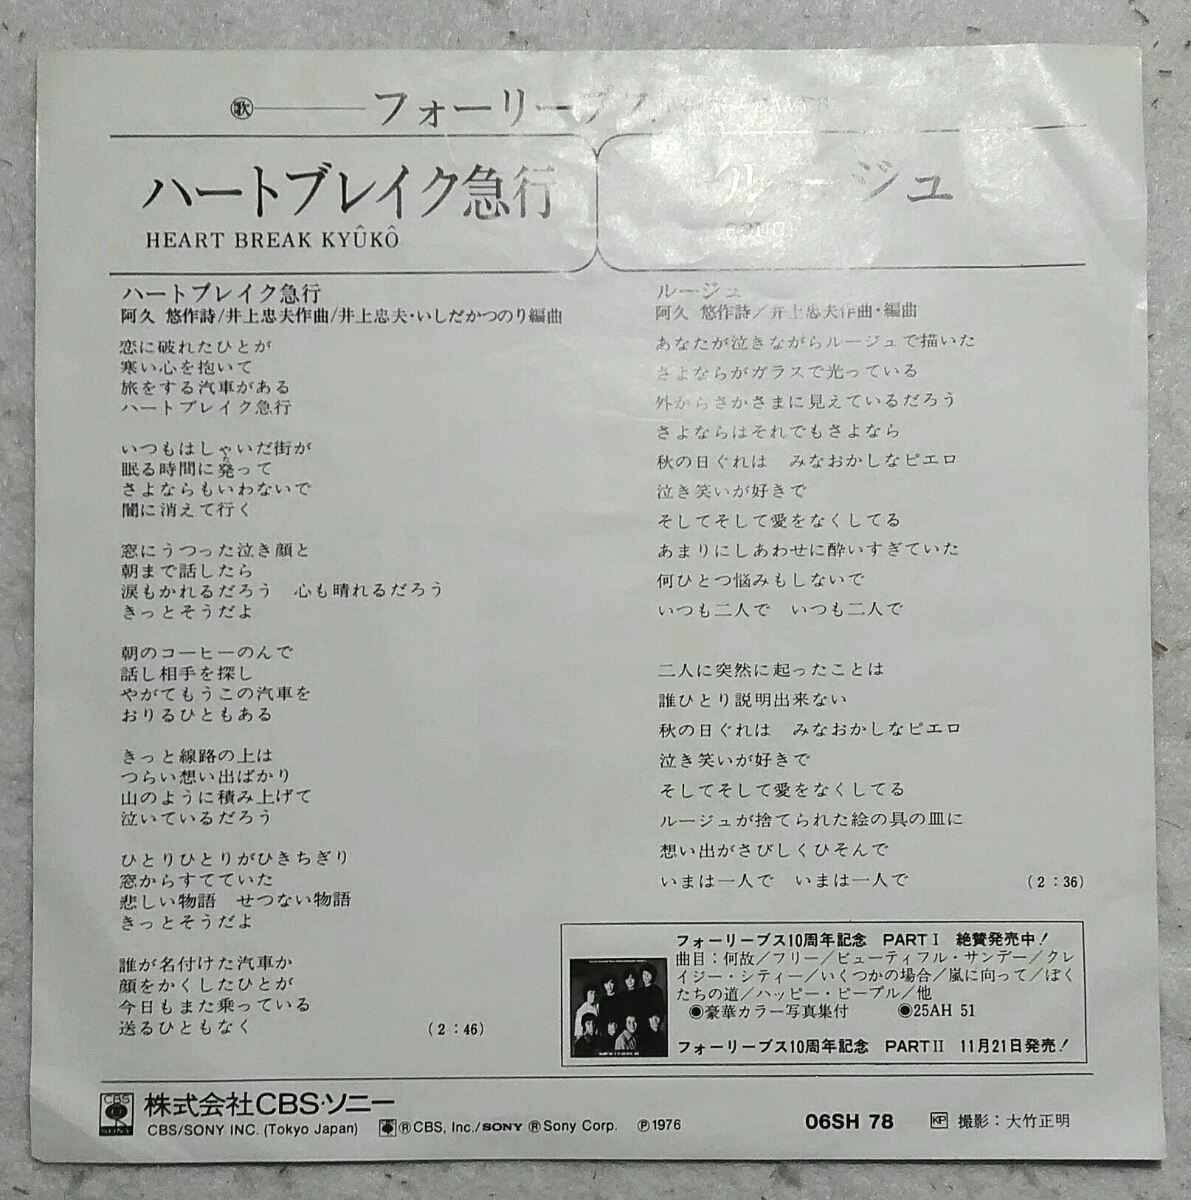 歌 フォーリーブス
ハートブレイク急行
HEART BREAK KYÛKÔ
ルージュ
ハートブレイク急行
阿久 悠作詩/井上忠夫作曲/井上忠夫・いしだかつのり編曲
恋に破れたひとが
寒い心を抱いて
旅をする汽車がある
ハートブレイク急行
いつもはしゃいだ街が
眠る時間に発って
さよならもいわないで
闇に消えて行く
窓にうつった泣き顔と
朝まで話したら
涙もかれるだろう 心も晴れるだろう
きっとそうだよ
朝のコーヒーのんで
話し相手を探し
やがてもうこの汽車を
おりるひともある
きっと線路の上は
つらい想い出ばかり
山のように積み上げて
泣いているだろう
ひとりひとりがひきちぎり
窓からすてていた
悲しい物語 せつない物語
きっとそうだよ
誰が名付けた汽車か
顔をかくしたひとが
今日もまた乗っている
送るひともなく (2:46)
ルージュ
阿久 悠作詩/井上忠夫作曲・編曲
あなたが泣きながらルージュで描いた
さよならがガラスで光っている
外からさかさまに見えているだろう
さよならはそれでもさよなら
秋の日ぐれは みなおかしなピエロ
泣き笑いが好きで
そしてそして愛をなくしてる
あまりにしあわせに酔いすぎていた
何ひとつ悩みもしないで
いつも二人で いつも二人で
二人に突然に起ったことは
誰ひとり説明出来ない
秋の日ぐれは みなおかしなピエロ
泣き笑いが好きで
そしてそして愛をなくしてる
ルージュが捨てられた絵の具の皿に
想い出がさびしくひそんで
いまは一人で いまは一人で (2:36)
フォーリーブス10周年記念 PART I 絶賛発売中!
曲目:何故/フリー/ビューティフル・サンデー/クレ
イジー・シティー/いくつかの場合/嵐に向って/ぼく
たちの道/ハッピー・ピープル/他
◉豪華カラー写真集付 ◉25AH 51
フォーリーブス10周年記念 PART II 11月21日発売!
CBS SONY 株式会社CBS・ソニー
CBS/SONY INC. (Tokyo Japan) ®CBS, Inc./SONY ®Sony Corp. ℗1976 06SH 78 KP 撮影:大竹正明